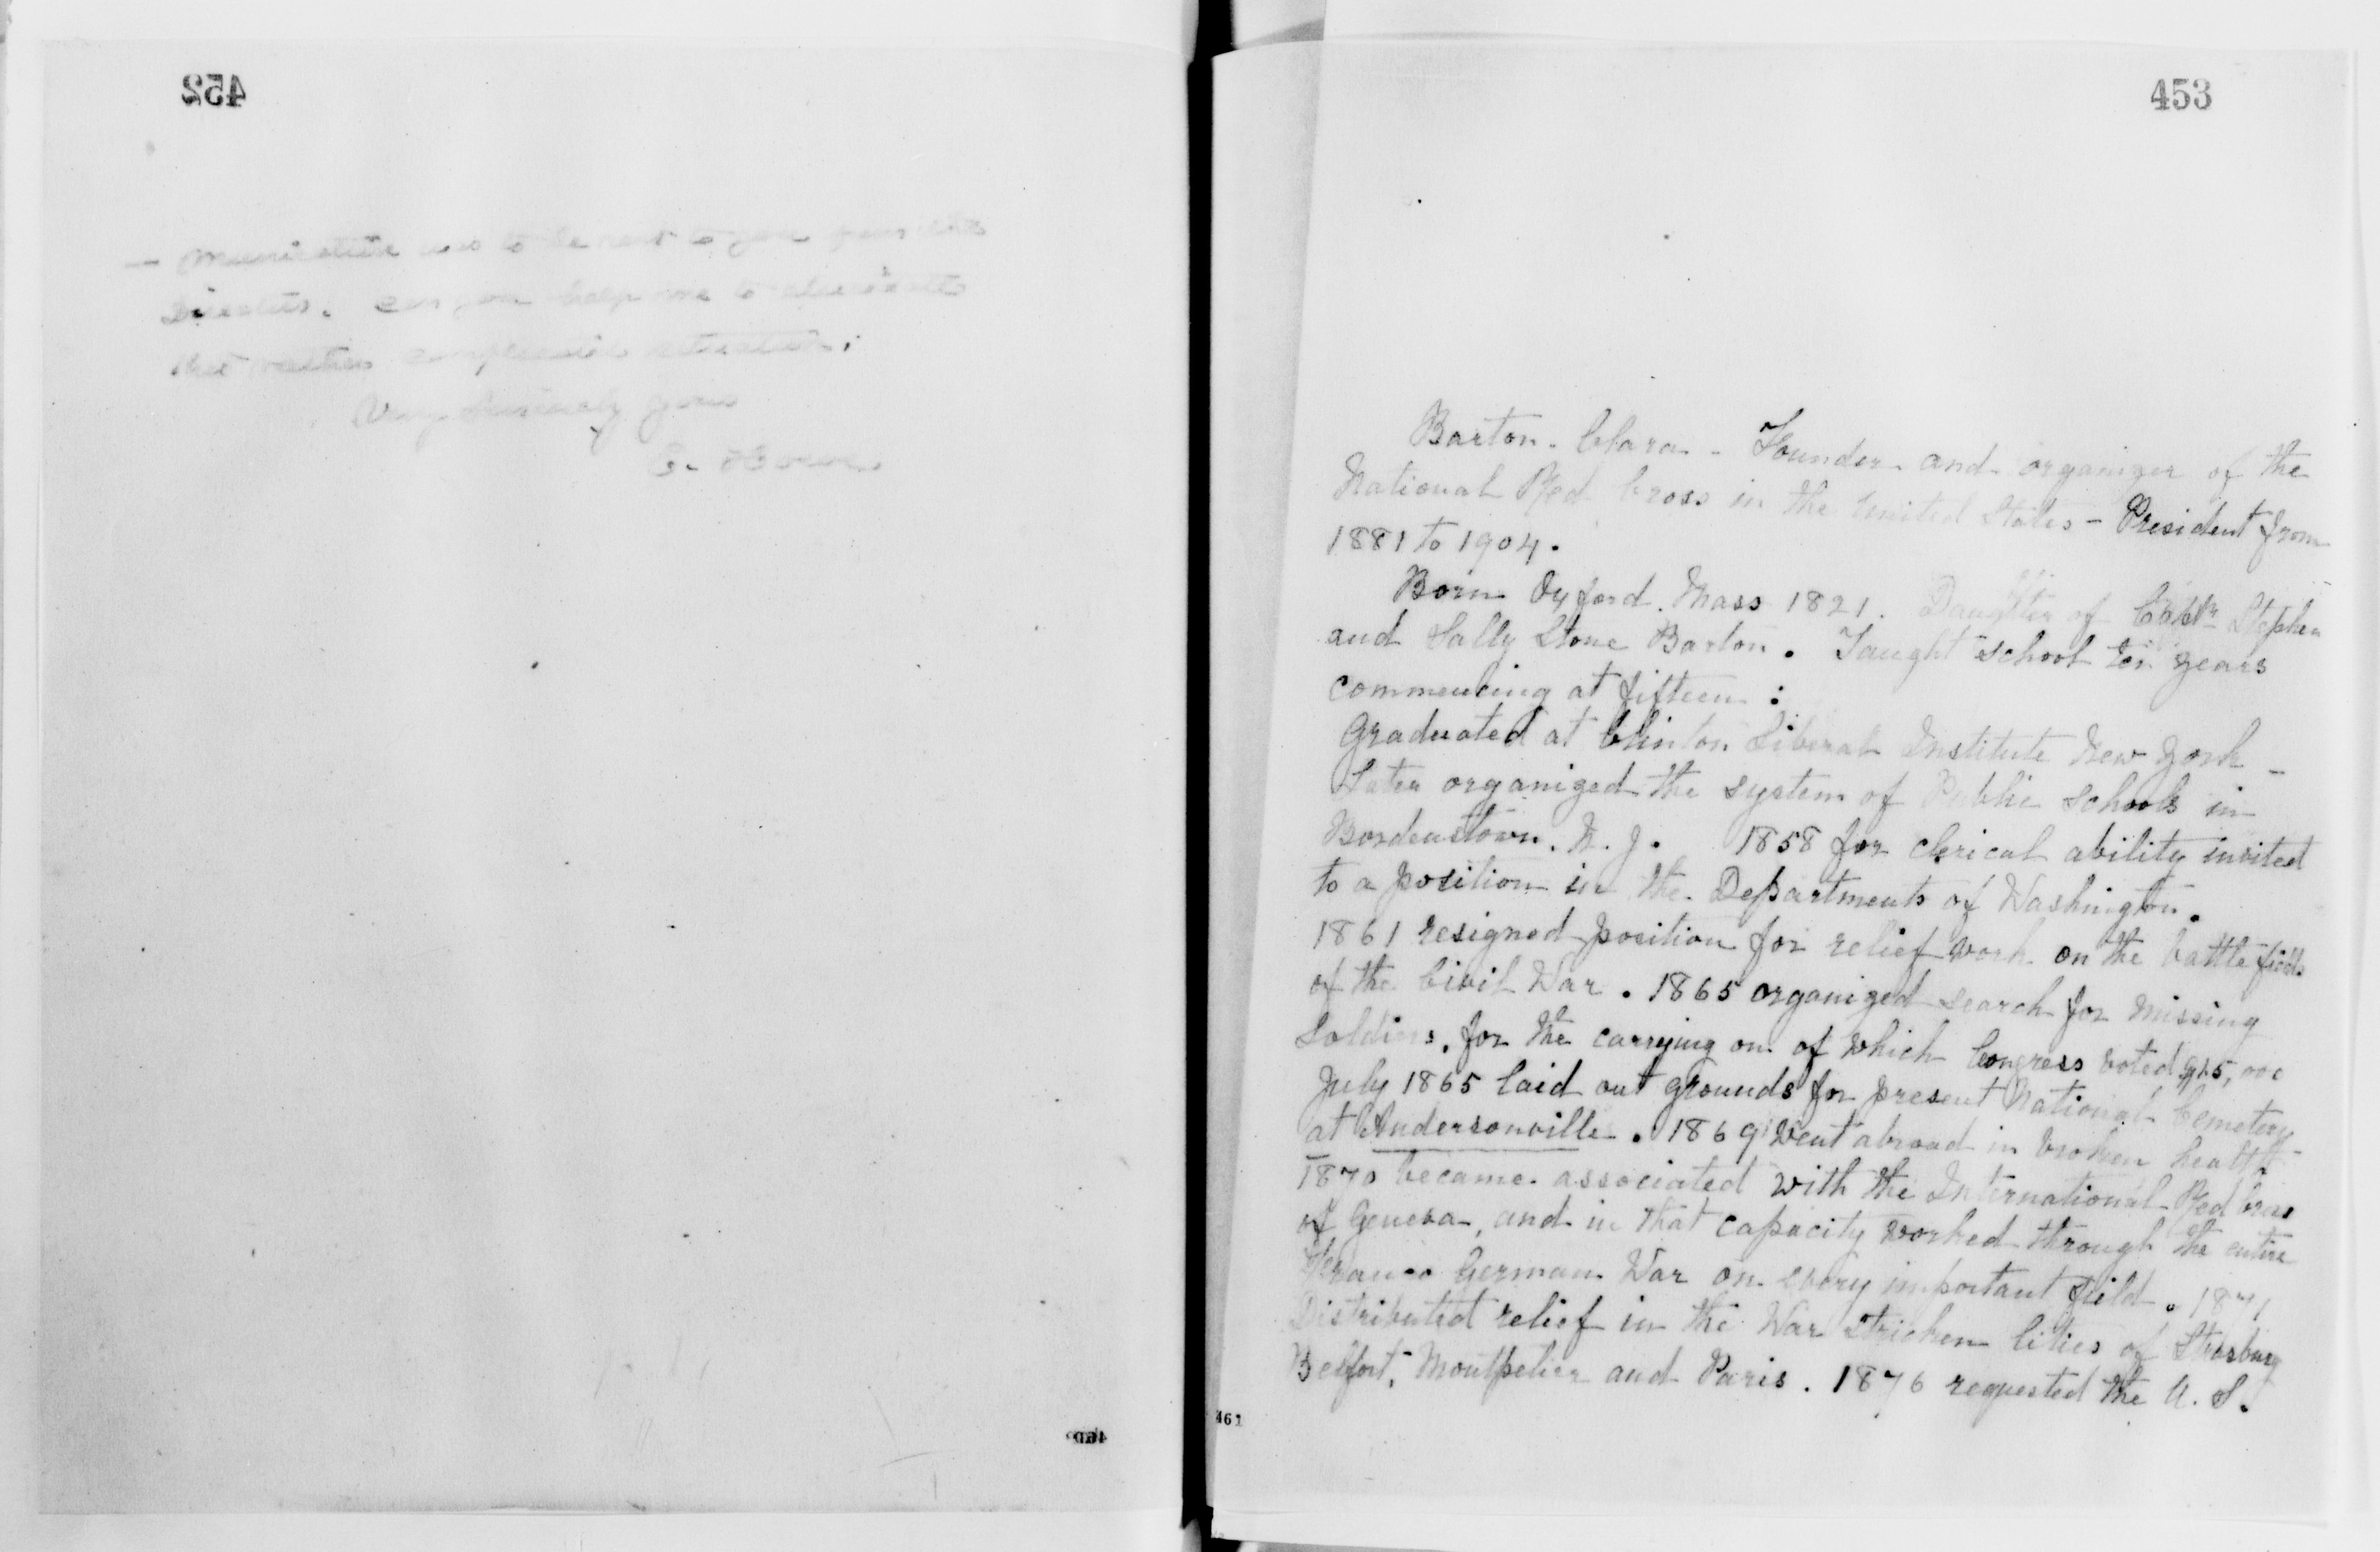 452
can you help me to
this rather complicated situation.
Very Sincerely yours
453
Barton. Clara - Founder and organizer of the
National Red Cross in the United States - President from
1881 to 1904.
Born Oxford. Mass 1821. Daughter of Capt Stephen
and Sally Stone Barton. Taught school ten years
commencing at fifteen :
Graduated at Clinton Liberal Institute New York -
Later organized the system of Public Schools in
Bordentown. N. J. 1858 for clerical ability invited
to a position in the Departments of Washington.
1861 resigned position for relief work on the battle fields
of the Civil War. 1865 organized search for missing
Soldiers. for the carrying on of which Congress voted $15,000
July 1865 laid out grounds for present National Cemetery
at Andersonville. 1869 went abroad in broken health
1870 became associated with the International Red Cross
of Geneva, and in that capacity worked through the entire
Franco German War on every important field. 1871
Distributed relief in the War stricken Cities of Strasburg
Belfort, Montpelier and Paris. 1876 requested the U. S.
461
460